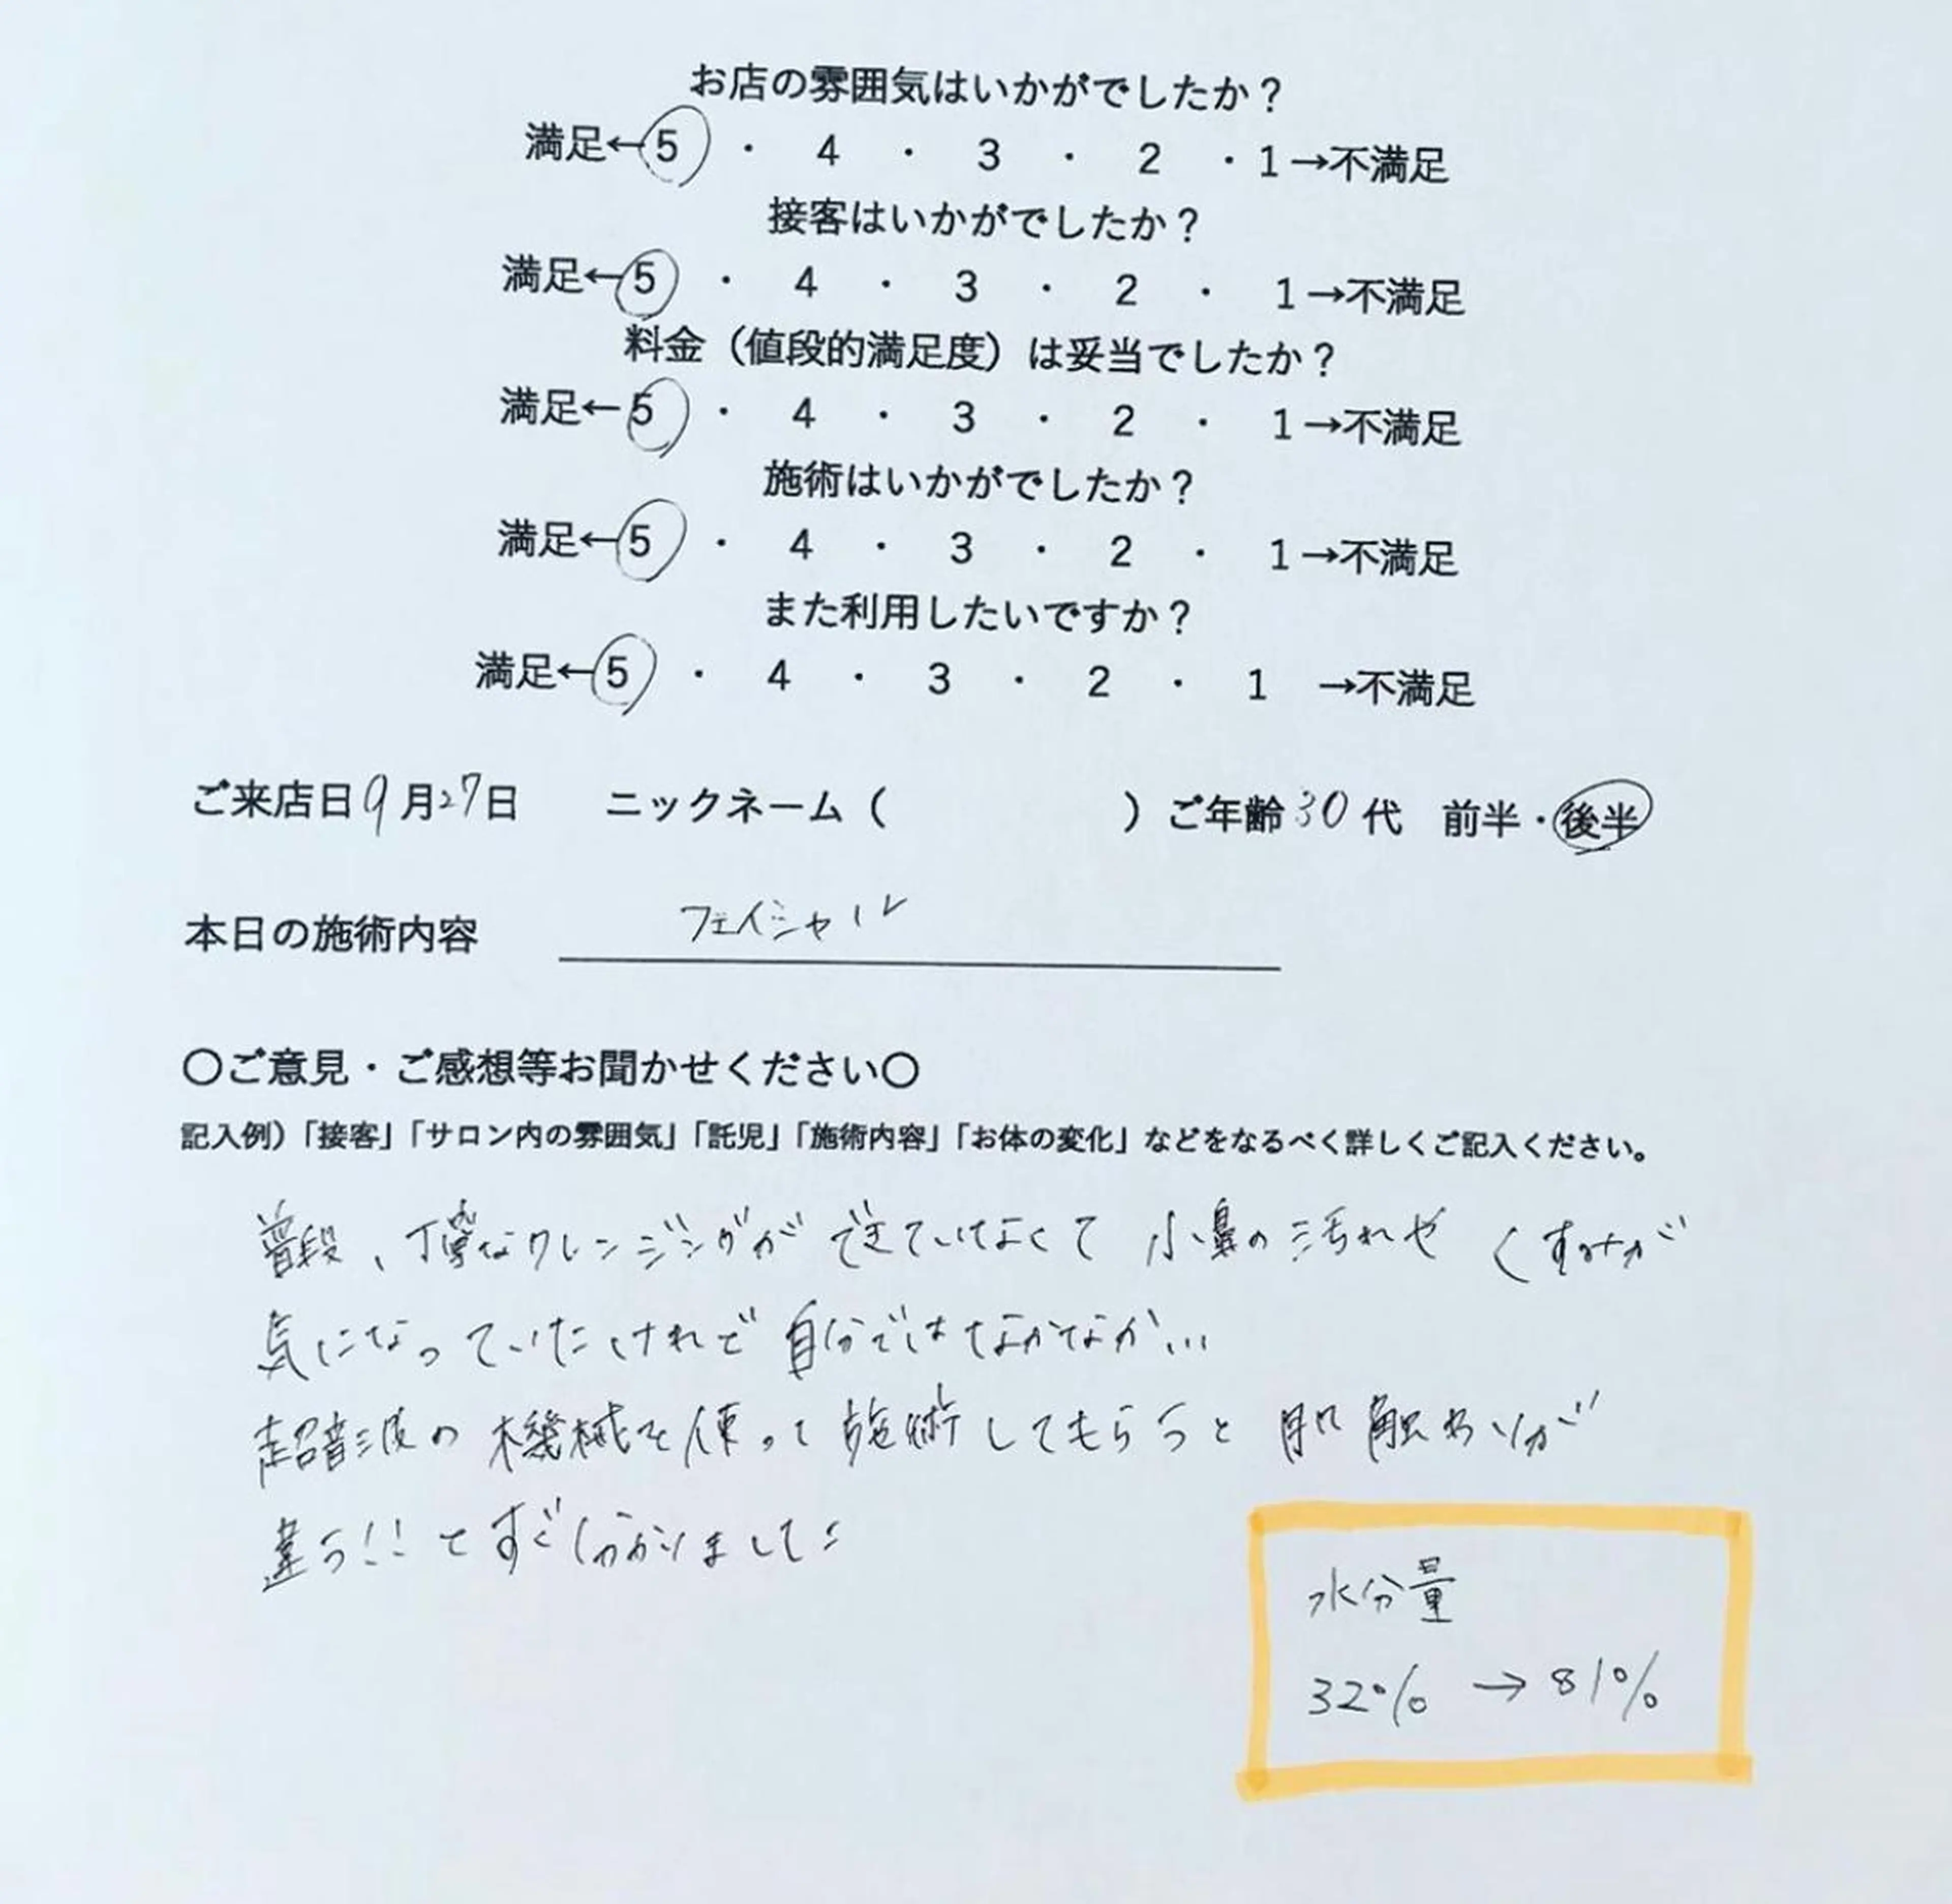 お店の雰囲気はいかがでしたか？
満足←5 ・ 4 ・ 3 ・ 2 ・1→不満足
接客はいかがでしたか？
満足←5 ・ 4 ・ 3 ・ 2 ・ 1→不満足
料金（値段的満足度）は妥当でしたか？
満足←5 ・ 4 ・ 3 ・ 2 ・ 1→不満足
施術はいかがでしたか？
満足←5 ・ 4 ・ 3 ・ 2 ・ 1→不満足
また利用したいですか？
満足←5 ・ 4 ・ 3 ・ 2 ・ 1 →不満足
ご来店日9月27日 ニックネーム（ ）ご年齢30代 前半・後半
本日の施術内容 フェイシャル
〇ご意見・ご感想等お聞かせください〇
記入例）「接客」「サロン内の雰囲気」「託児」「施術内容」「お体の変化」などをなるべく詳しくご記入ください。
普段、丁寧なクレンジングができていなくて 小鼻の汚れや くすみが
気になっていたけれど 自分ではなかなか…
超音波の機械を使って施術してもらうと 肌触わりが
違う!!とすぐ分かりました
水分量
32% → 81%